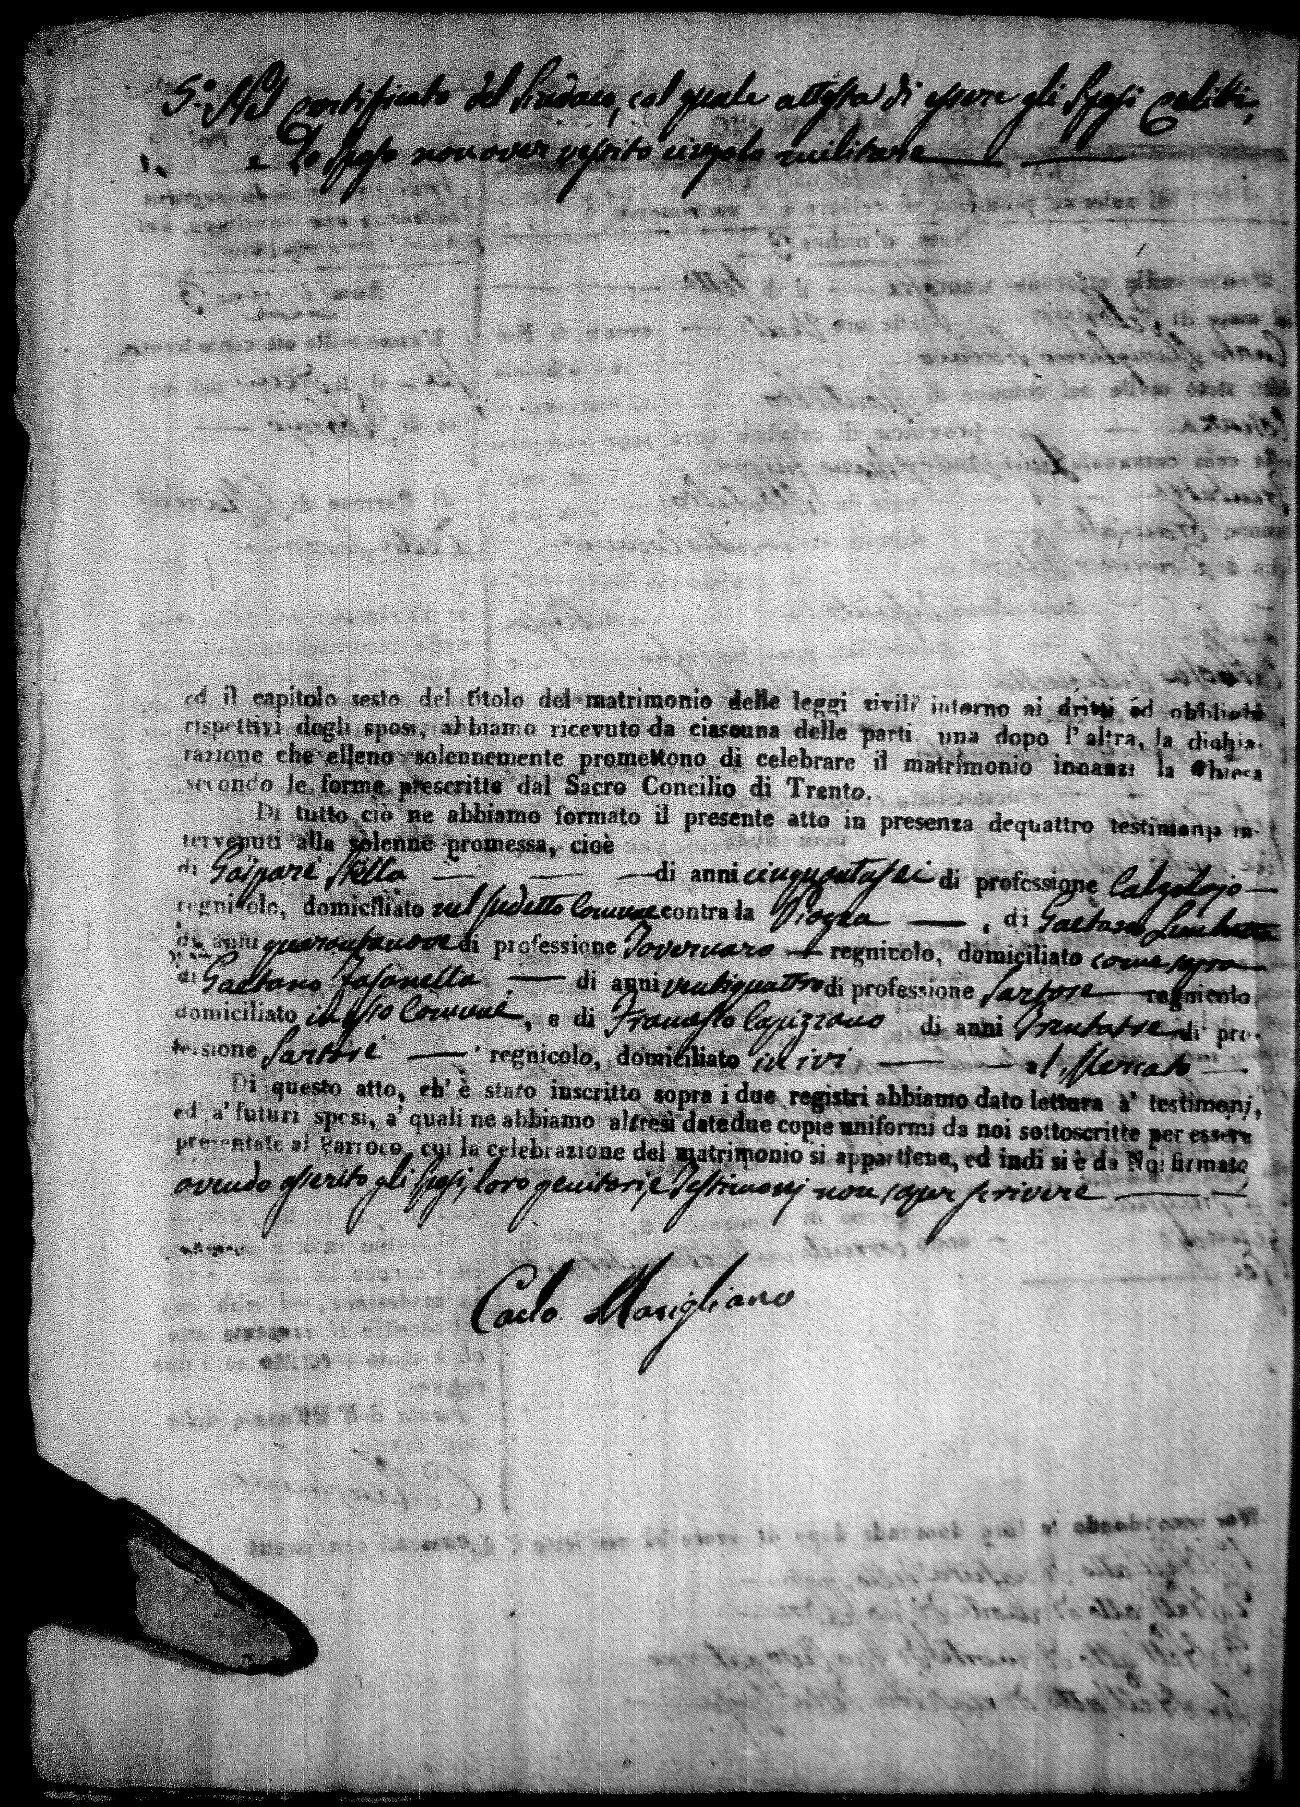 5.° Del certificato del Sindaco, col quale attesta di essere gli Sposi celibi,
e lo sposo non aver vissuto vincolo militare
ed il capitolo sesto del titolo del matrimonio delle leggi civili intorno ai dritti ed obblighi
rispettivi degli sposi, abbiamo ricevuto da ciascuna delle parti una dopo l'altra, la dichia-
razione che elleno solennemente promettono di celebrare il matrimonio innanzi la Chiesa
secondo le forme prescritte dal Sacro Concilio di Trento.
Di tutto ciò ne abbiamo formato il presente atto in presenza dequattro testimonj in-
tervenuti alla solenne promessa, cioè
di Gaspare Stella di anni cinquantasei di professione Calzolajo
regnicolo, domiciliato nel sudetto Comune contra la Piazza , di Gaetano
di anni quarantanove di professione Tavernaro regnicolo, domiciliato come sopra
di Gaetano Fasanella di anni ventiquattro di professione Sartore regnicolo
domiciliato in esso Comune, e di Francesco Capizzano di anni Trentatre di pro-
fessione Sartore regnicolo, domiciliato in ivi al Mercato
Di questo atto, ch' è stato inscritto sopra i due registri abbiamo dato lettura a' testimonj,
ed a' futuri sposi, a' quali ne abbiamo altresì date due copie uniformi da noi sottoscritte per essere
presentate al Parroco, cui la celebrazione del matrimonio si appartiene, ed indi si è da Noi firmato
avendo asserito gli sposi, loro genitori, e Testimonj non saper scrivere
Carlo Marigliano